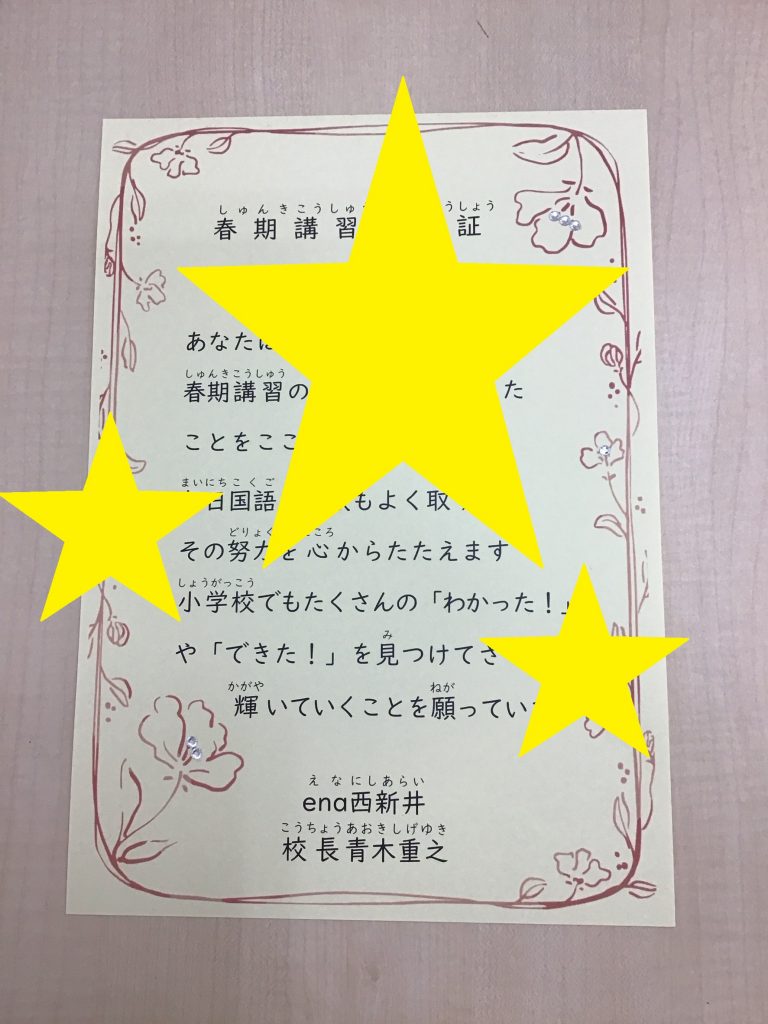 しゅんきこうしゅ うしょう
春期講習 証
あなたは
しゅんきこうしゅう
春期講習の た
ことをここ
まいにちこくご
日国語 もよく取
どりょく こころ
その努力を心からたたえます
しょうがっこう
小学校でもたくさんの「わかった！」
み
や「できた！」を見つけてさ
かがや ねが
輝いていくことを願ってい
えなにしあらい
ena西新井
こうちょうあおきしげゆき
校長青木重之